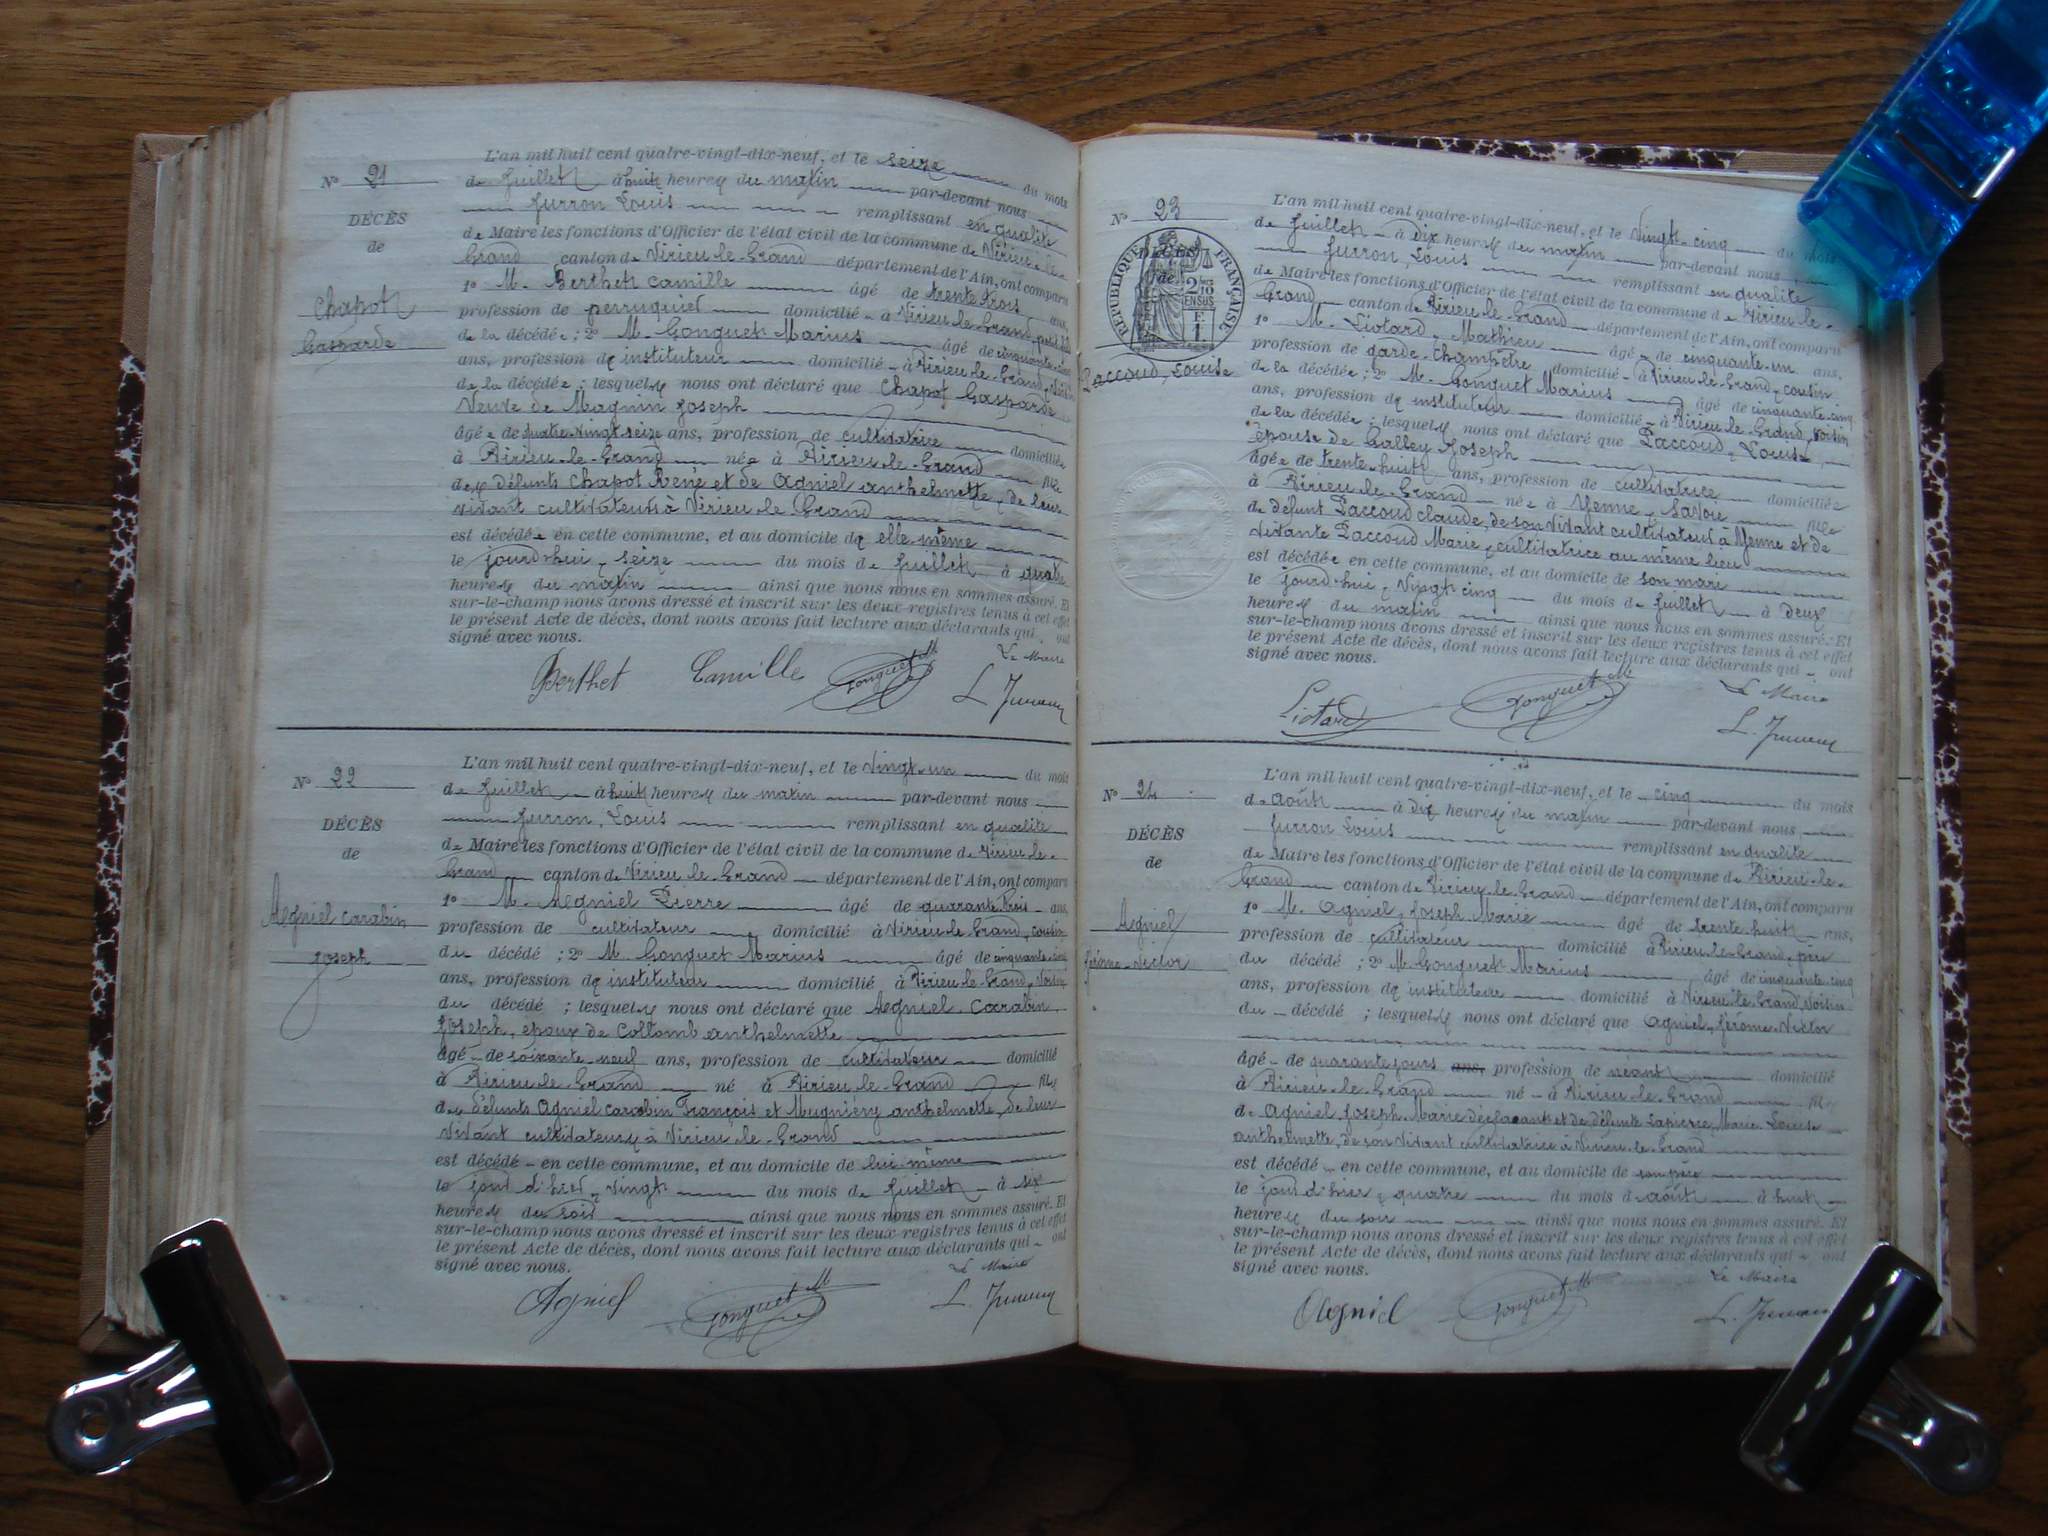 L'an mil huit cent quatre-vingt-dix-neuf, et le seize du mois
N° 21
de Juillet à huit heures du matin par-devant nous
Jurron Louis remplissant en qualité
DÉCÈS
de Maire les fonctions d'Officier de l'état civil de la commune de Virieu-le-
de
Grand canton de Virieu-le-Grand département de l'Ain, ont comparu
1° M. Berthet Camille âgé de trente trois ans,
Chapot
profession de perruquier domicilié à Virieu-le-Grand, petit-fils
Gasparde
de la décédée ; 2° M. Gonguet Marius âgé de cinquante-cinq
ans, profession de instituteur domicilié à Virieu-le-Grand, voisin
de la décédée ; lesquels nous ont déclaré que Chapot Gasparde
Veuve de Magnin Joseph
âgée de quatre-vingt-seize ans, profession de cultivatrice domiciliée
à Virieu-le-Grand née à Virieu-le-Grand fille
des défunts Chapot René et de Agniel anthelmette, de leur
vivant cultivateurs à Virieu-le-Grand
est décédée en cette commune, et au domicile de elle-même
le jourd'hui, seize du mois de Juillet à quatre
heures du matin ainsi que nous nous en sommes assuré. Et
sur-le-champ nous avons dressé et inscrit sur les deux registres tenus à cet effet
le présent Acte de décès, dont nous avons fait lecture aux déclarants qui ont
signé avec nous.
Le Maire
Berthet Camille Gonguet M L. Jurron
L'an mil huit cent quatre-vingt-dix-neuf, et le vingt-un du mois
N° 22
de Juillet à huit heures du matin par-devant nous
Jurron, Louis remplissant en qualité
DÉCÈS
de Maire les fonctions d'Officier de l'état civil de la commune de Virieu-le-
de
Grand canton de Virieu-le-Grand département de l'Ain, ont comparu
1° M. Agniel Pierre âgé de quarante-trois ans,
Agniel Carabin
profession de cultivateur domicilié à Virieu-le-Grand, cousin
Joseph
du décédé ; 2° M. Gonguet Marius âgé de cinquante-cinq
ans, profession de instituteur domicilié à Virieu-le-Grand, voisin
du décédé ; lesquels nous ont déclaré que Agniel Carabin
Joseph, époux de Collomb anthelmette
âgé de soixante-neuf ans, profession de cultivateur domicilié
à Virieu-le-Grand né à Virieu-le-Grand fils
des défunts Agniel Carabin François et Mugniéry anthelmette, de leur
vivant cultivateurs à Virieu-le-Grand
est décédé en cette commune, et au domicile de lui-même
le jour d'hier, vingt du mois de Juillet à six
heures du soir ainsi que nous nous en sommes assuré. Et
sur-le-champ nous avons dressé et inscrit sur les deux registres tenus à cet effet
le présent Acte de décès, dont nous avons fait lecture aux déclarants qui ont
signé avec nous.
Le Maire
Agniel Gonguet M L. Jurron
L'an mil huit cent quatre-vingt-dix-neuf, et le vingt-cinq du mois
N° 23
de Juillet à dix heures du matin par-devant nous
Jurron, Louis remplissant en qualité
RÉPUBLIQUE FRANÇAISE
DÉCÈS
de
2/10 EN SUS
1 F.
de Maire les fonctions d'Officier de l'état civil de la commune de Virieu-le-
Grand canton de Virieu-le-Grand département de l'Ain, ont comparu
1° M. Liotard, Mathieu âgé de cinquante-un ans,
profession de garde-champêtre domicilié à Virieu-le-Grand, cousin
Paccoud, Louise
de la décédée ; 2° M. Gonguet Marius âgé de cinquante-cinq
ans, profession de instituteur domicilié à Virieu-le-Grand, voisin
de la décédée ; lesquels nous ont déclaré que Paccoud, Louise,
épouse de Balley Joseph
âgée de trente-huit ans, profession de cultivatrice domiciliée
à Virieu-le-Grand née à Yenne, Savoie fille
de défunt Paccoud Claude, de son vivant cultivateur à Yenne et de
vivante Paccoud Marie, cultivatrice au même lieu
est décédée en cette commune, et au domicile de son mari
le jourd'hui, vingt-cinq du mois de Juillet à deux
heures du matin ainsi que nous nous en sommes assuré. Et
sur-le-champ nous avons dressé et inscrit sur les deux registres tenus à cet effet
le présent Acte de décès, dont nous avons fait lecture aux déclarants qui ont
signé avec nous.
Le Maire
Liotard Gonguet M L. Jurron
L'an mil huit cent quatre-vingt-dix-neuf, et le cinq du mois
N° 24
de Août à dix heures du matin par-devant nous
Jurron Louis remplissant en qualité
DÉCÈS
de Maire les fonctions d'Officier de l'état civil de la commune de Virieu-le-
de
Grand canton de Virieu-le-Grand département de l'Ain, ont comparu
1° M. Agniel, Joseph Marie âgé de trente-huit ans,
Agniel
profession de cultivateur domicilié à Virieu-le-Grand, père
Jérôme-Victor
du décédé ; 2° M. Gonguet Marius âgé de cinquante-cinq
ans, profession de instituteur domicilié à Virieu-le-Grand, voisin
du décédé ; lesquels nous ont déclaré que Agniel, Jérôme-Victor
âgé de quarante jours ans, profession de néant domicilié
à Virieu-le-Grand né à Virieu-le-Grand fils
de Agniel Joseph Marie déclarant et de défunte Lapierre, Marie Louise
anthelmette, de son vivant cultivatrice à Virieu-le-Grand
est décédé en cette commune, et au domicile de son père
le jour d'hier, quatre du mois de août à huit
heures du soir ainsi que nous nous en sommes assuré. Et
sur-le-champ nous avons dressé et inscrit sur les deux registres tenus à cet effet
le présent Acte de décès, dont nous avons fait lecture aux déclarants qui ont
signé avec nous.
Le Maire
Agniel Gonguet M L. Jurron